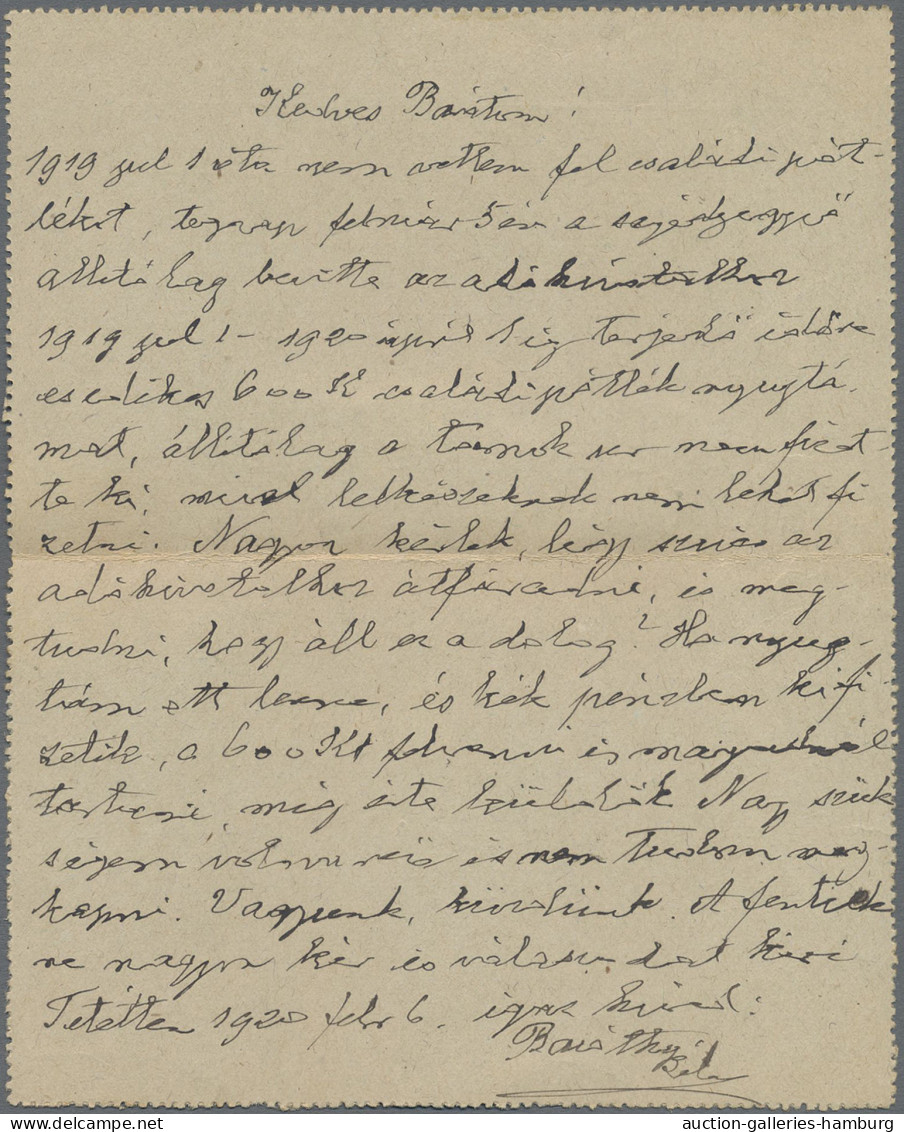 Kedves Barátom!
1919 jul 1 óta nem vettem fel családi pót-
lékot, tegnap február 5én a segédjegyző
állitólag bevitte az adóhivatalhoz
1919 jul 1 - 1920 ápril 1 ig terjedő időre
esedékes 600 K családi pótlék nyugtá-
mat, állitólag a nem fizet-
te ki, mivel lelkészeknek nem lehet fi
zetni. Nagyon kérlek, légy szives az
adóhivatalhoz átfáradni, és meg-
tudni, hogy áll ez a dolog? Ha nyug-
tám ott lenne, és kék pénzben kifi-
zetik, a 600 Kt felvenni és magadnál
tartani, mig érte küldök Nagy szük
ségem volna reá és nem tudom meg-
kapni. Vagyunk, küzdünk. A fentiek
re nagyon kér és válaszodat kéri
Tetétlen 1920 febr 6. igaz hived:
Baráthy
Béla
auction-galleries-hamburg